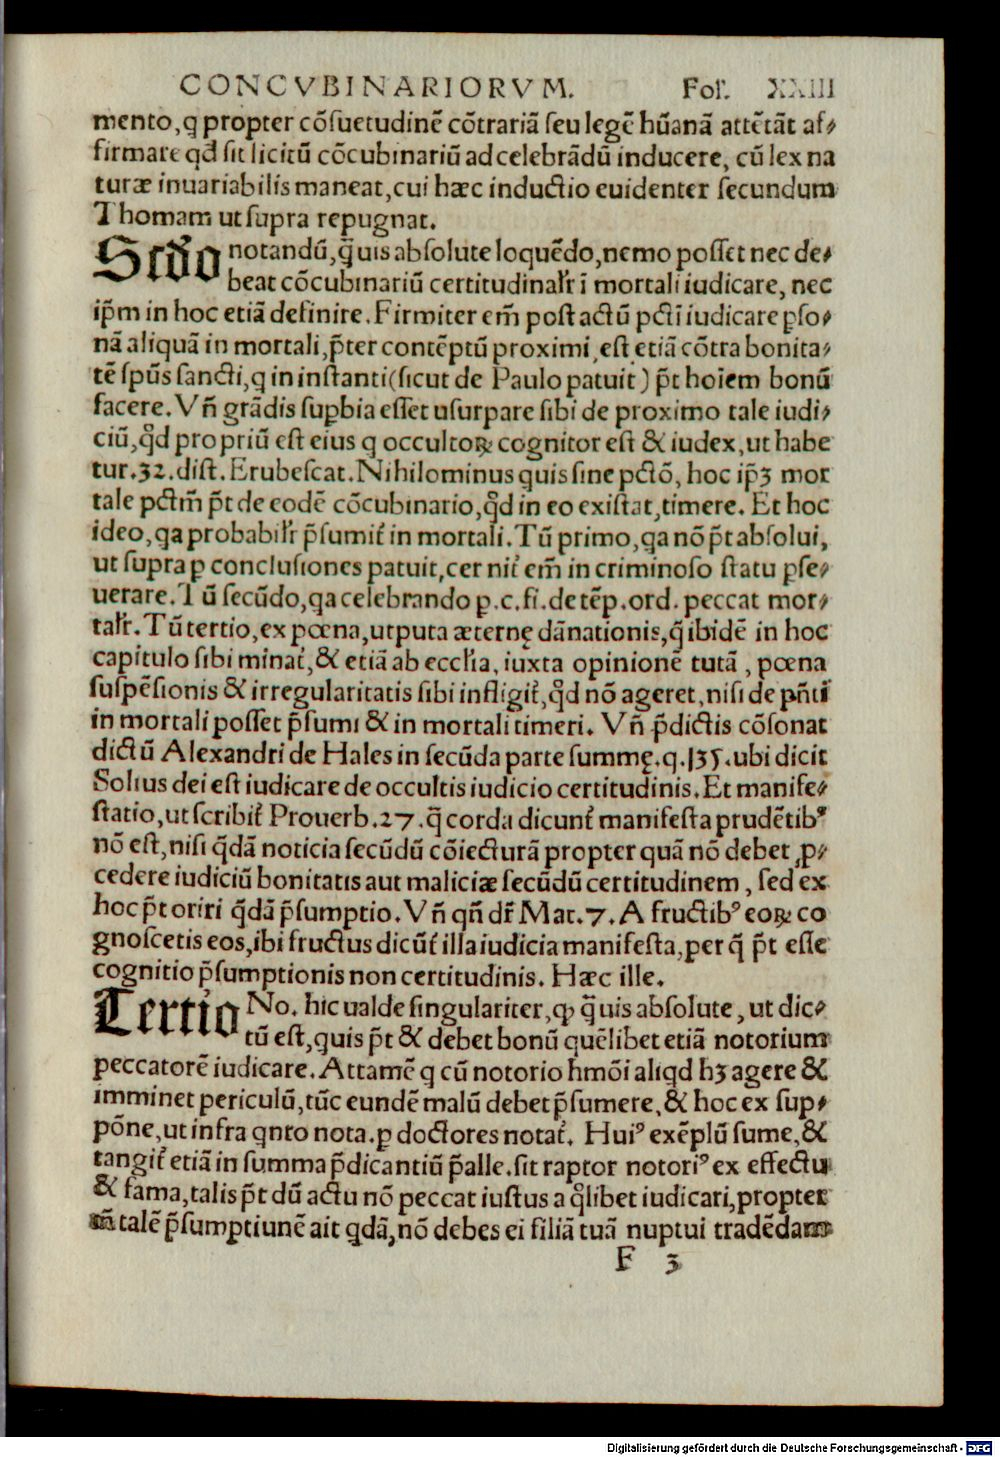 CONCVBINARIORVM. Fol. XXIII
mento, q propter cõsuetudinẽ cõtrariã seu legẽ hũanã attẽtãt af⸗
firmare qd̃ sit licitũ cõcubinariũ ad celebrãdũ inducere, cũ lex na
turæ inuariabilis maneat, cui hæc inductio euidenter secundum
Thomam ut supra repugnat.
Scd̃o notandũ, q̃uis absolute loquẽdo, nemo posset nec de⸗
beat cõcubinariũ certitudinalr̃ ĩ mortali iudicare, nec
ip̃m in hoc etiã definire. Firmiter em̃ post actũ pctĩ iudicare ꝑso⸗
nã aliquã in mortali, p̃ter contẽptũ proximi, est etiã cõtra bonita⸗
tẽ spũs sancti, q in instanti (sicut de Paulo patuit) p̃t hoĩem bonũ
facere. Vñ grãdis suꝑbia esset usurpare sibi de proximo tale iudi⸗
ciũ, qd̃ propriũ est eius q occultoꝝ cognitor est & iudex, ut habe
tur. 32. dist. Erubescat. Nihilominus quis sine pctõ, hoc ip̃ꝫ mor
tale pctm̃ p̃t de eodẽ cõcubinario, qd̃ in eo existat, timere. Et hoc
ideo, qa probabilr̃ p̃sumit̃ in mortali. Tũ primo, qa nõ p̃t absolui,
ut supra ꝑ conclusiones patuit, cernit̃ em̃ in criminoso statu ꝑse⸗
uerare. Tũ secũdo, qa celebrando ꝑ. c. fi. de tẽp. ord. peccat mor⸗
talr̃. Tũ tertio, ex pœna, utputa æternę dãnationis, q̃ ibidẽ in hoc
capitulo sibi minat̃, & etiã ab eccl̃ia, iuxta opinionẽ tutã, pœna
suspẽsionis & irregularitatis sibi infligit̃, qd̃ nõ ageret, nisi de pñti
in mortali posset p̃sumi & in mortali timeri. Vñ p̃dictis cõsonat
dictũ Alexandri de Hales in secũda parte summę. q. 135. ubi dicit
Solius dei est iudicare de occultis iudicio certitudinis. Et manife⸗
statio, ut scribit̃ Prouerb. 27. q̃ corda dicunt̃ manifesta prudẽtibꝰ
nõ est, nisi q̃dã noticia secũdũ cõiecturã propter quã nõ debet ꝓ⸗
cedere iudiciũ bonitatis aut maliciæ secũdũ certitudinem, sed ex
hoc p̃t oriri q̃dã p̃sumptio. Vñ qñ dr̃ Mat. 7. A fructibꝰ eoꝝ co
gnoscetis eos, ibi fructus dicũt̃ illa iudicia manifesta, per q̃ p̃t esse
cognitio p̃sumptionis non certitudinis. Hæc ille.
Tertio No. hic ualde singulariter, ꝙ q̃uis absolute, ut dic⸗
tũ est, quis p̃t & debet bonũ quẽlibet etiã notorium
peccatorẽ iudicare. Attamẽ q cũ notorio hm̃õi aliqd hꝫ agere &
imminet periculũ, tũc eundẽ malũ debet p̃sumere, & hoc ex sup⸗
põne, ut infra qnto nota. ꝑ doctores notat̃. Huiꝰ exẽplũ sume, &
tangit̃ etiã in summa p̃dicantiũ p̃alle. sit raptor notoriꝰ ex effectu
& fama, talis p̃t dũ actu nõ peccat iustus a q̃libet iudicari, propter
tñ talẽ p̃sumptiunẽ ait qdã, nõ debes ei filiã tuã nuptui tradẽdam
F 3
Digitalisierung gefördert durch die Deutsche Forschungsgemeinschaft - DFG